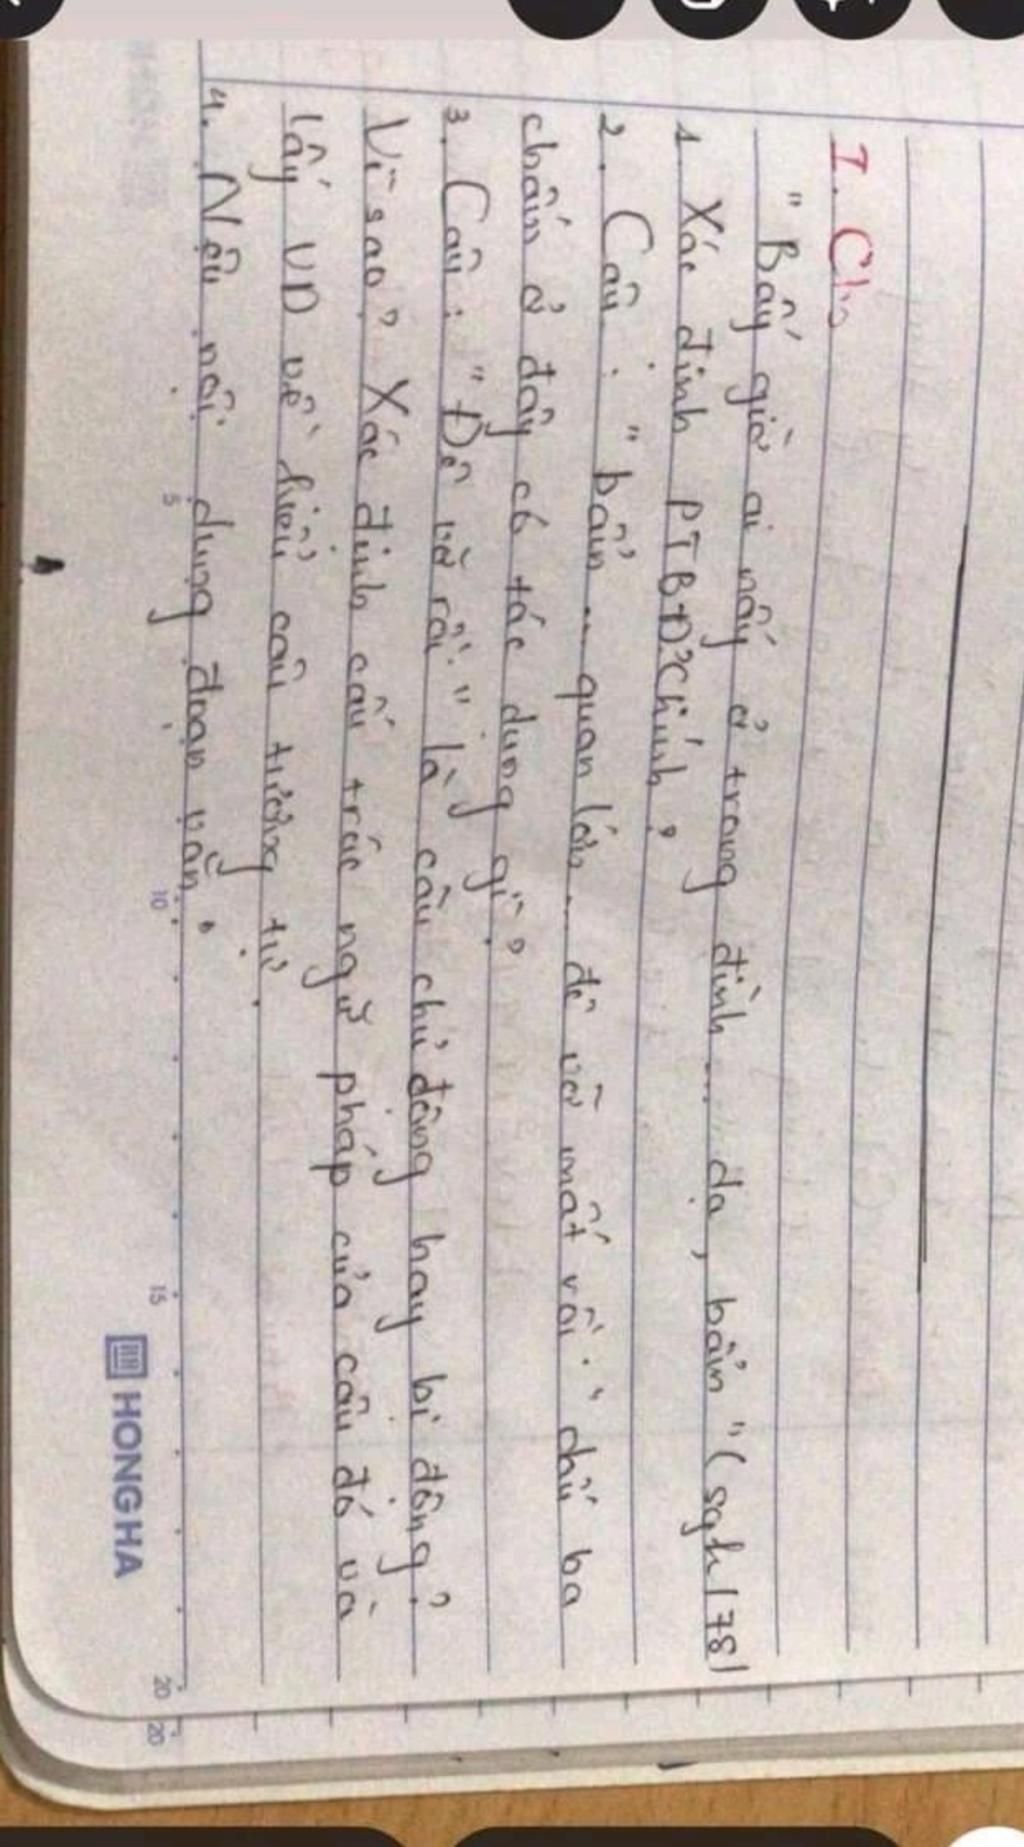 I. Cho
" Bấy giờ ai nấy ở trong đình ... dạ, bẩm " (sgk/78)
1 Xác định PTBĐ? Chính?
2. Câu : " bẩm ... quan lớn ... đê vỡ mất rồi. " dấu ba
chấm ở đây có tác dụng gì ?
3. Câu : " Đê vỡ rồi. " là câu chủ động hay bị động?
Vì sao? Xác định cấu trúc ngữ pháp của câu đó và
lấy VD về kiểu câu tương tự.
4. Nêu nội dung đoạn văn?
5 10 15 20 20
HONG HA